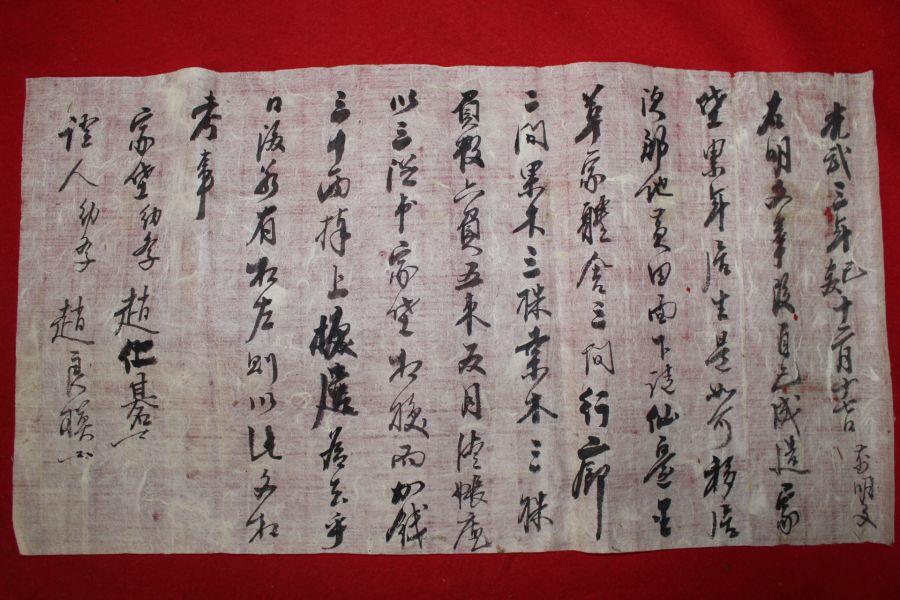 光武三年己亥十二月十七日 前明文
右明文事段自己成造家
垈累年居生是如可移居
次郡地田面下仙臺里
草家體舍三間行廊
二間果木三株桑木三株
員數六負五束
以三從中家垈相換而加錢
三十兩捧上居爲去乎
日後若有相左則以此文相
考事
家垈幼學 趙仁基
證人幼學 趙良